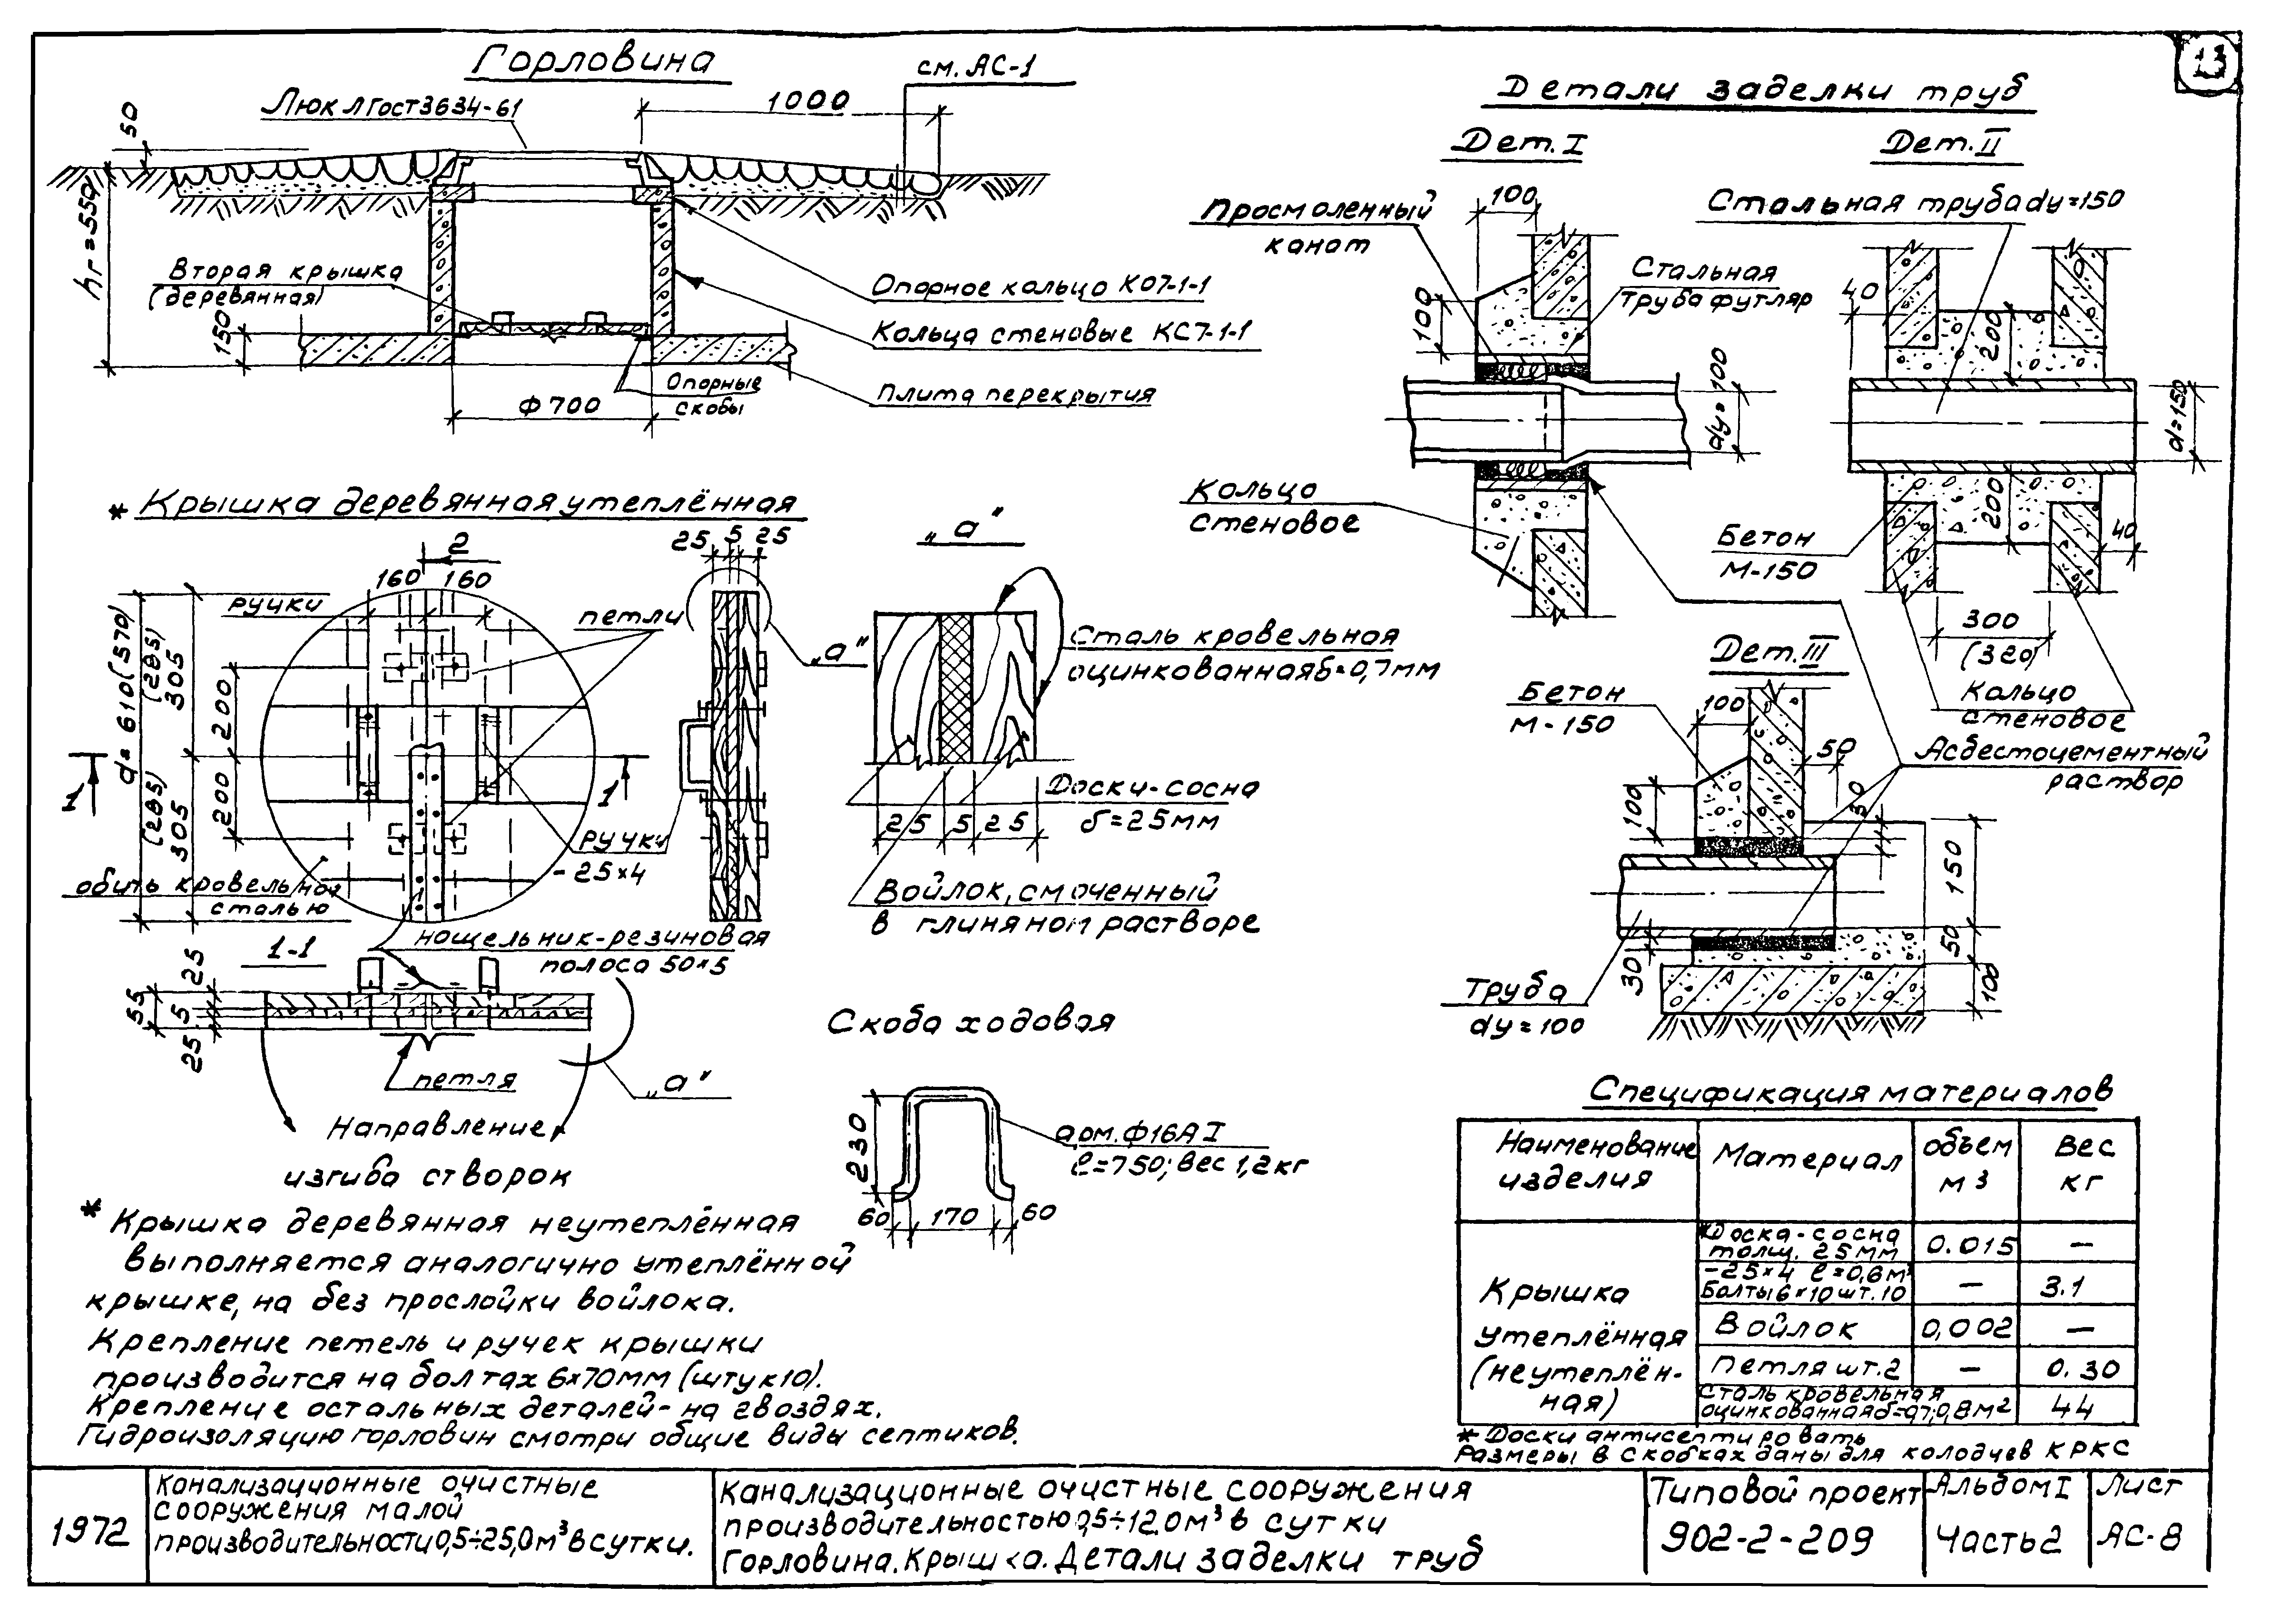 13
Горловина
см. АС-1
Люк Л ГОСТ 3634-61
1000
50
hг=550
Вторая крышка
(деревянная)
150
Ф700
Опорные
скобы
Опорное кольцо КО7-1-1
Кольца стеновые КС7-1-1
Плита перекрытия
Детали заделки труб
Дет. I
Просмоленный
канат
100
Стальная
труба футляр
100
dy=100
Кольцо
стеновое
Дет. II
Стальная труба dy=150
40
200
d=150
200
40
Бетон
М-150
300
(320)
Кольцо
стеновое
Дет. III
Бетон
М-150
100
50
Асбестоцементный
раствор
100
30
150
50
100
30
Труба
dy=100
* Крышка деревянная утеплённая
2
160 160
ручки
петли
d=610(570)
(285)
305
(285)
305
200
200
1
1
ручки
-25×4
обить кровельной
сталью
25 5 25
„а"
„а"
Сталь кровельная
оцинкованная δ=0,7мм
Доски-сосна
δ=25мм
25 5 25
Войлок, смоченный
в глиняном растворе
1-1
нащельник-резиновая
полоса 50×5
55
25
5
25
петля
„а"
Направление
изгиба створок
Скоба ходовая
230
60 170 60
арм. Ф16АI
ℓ=750; вес 1,2кг
* Крышка деревянная неутеплённая
выполняется аналогично утеплённой
крышке, на без прослойки войлока.
Крепление петель и ручек крышки
производится на болтах 6×70мм (штук10).
Крепление остальных деталей- на гвоздях.
Гидроизоляцию горловин смотри общие виды септиков.
Спецификация материалов
Наименование изделия Материал объем м³ Вес кг
Крышка
утеплённая
(неутеплён-
ная)
*Доска-сосна
толщ. 25мм 0.015 —
-25×4 ℓ=0,6м
Болты 6×10 шт.10 — 3.1
Войлок 0,002 —
Петля шт.2 — 0.30
Сталь кровельная
оцинкованная δ=0,7; 0,8м² 44
* Доски антисептировать
Размеры в скобках даны для колодцев КРКС
1972
Канализационные очистные
сооружения малой
производительности 0,5÷25,0м³ в сутки.
Канализационные очистные сооружения
производительностью 0,5÷12.0м³ в сутки
Горловина. Крышка. Детали заделки труб
Типовой проект
902-2-209
Альбом I
Часть 2
Лист
АС-8